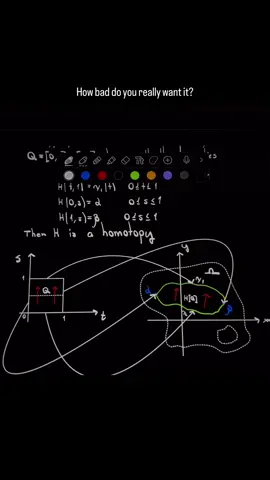 How bad do you really want it?
Q = [0,
H(t,1) = γ₁(t) 0 ≤ t ≤ 1
H(0,s) = α 0 ≤ s ≤ 1
H(1,s) = β 0 ≤ s ≤ 1
Then H is a homotopy
s
y
Ω
1
γ₁
Q
α
H(Q)
β
0
1
t